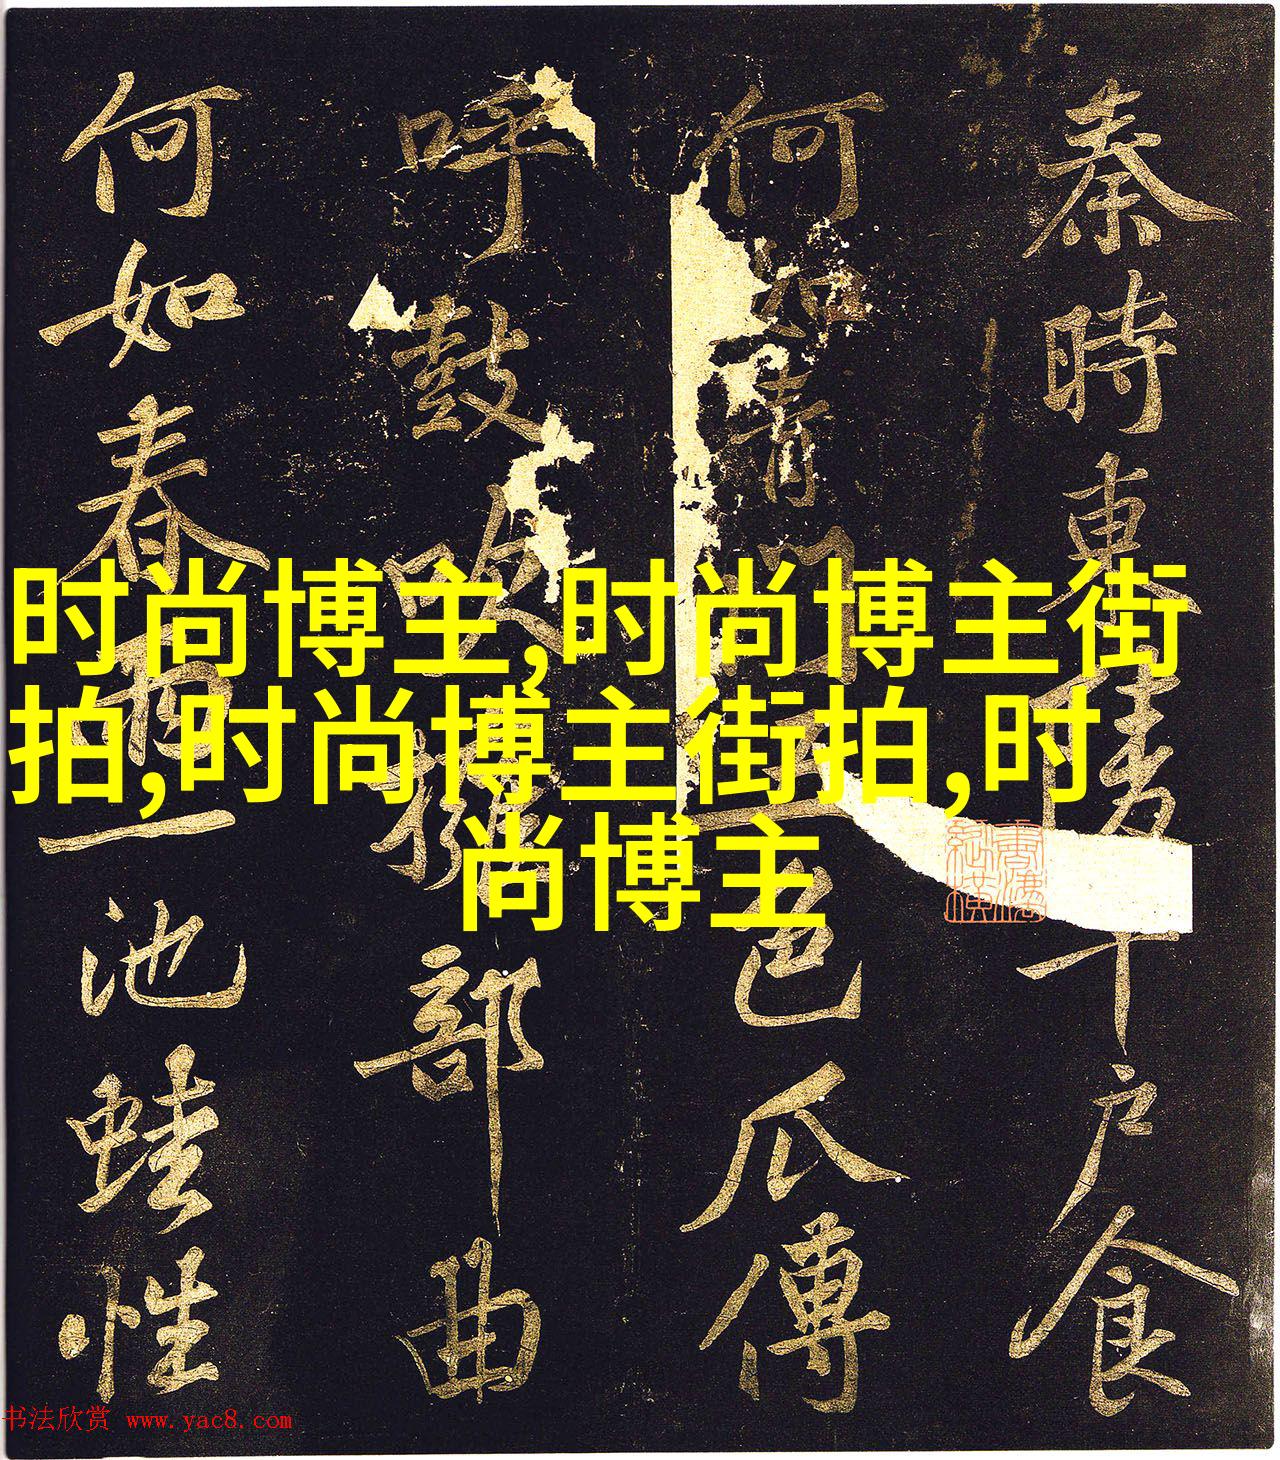 秦時東陵千戶食
何如青門五色瓜傳
呼鼓吹擁部曲
何如春雨一池蛙性
时尚博主,时尚博主街
拍,时尚博主街拍,时
尚博主
书法欣赏 www.yac8.com